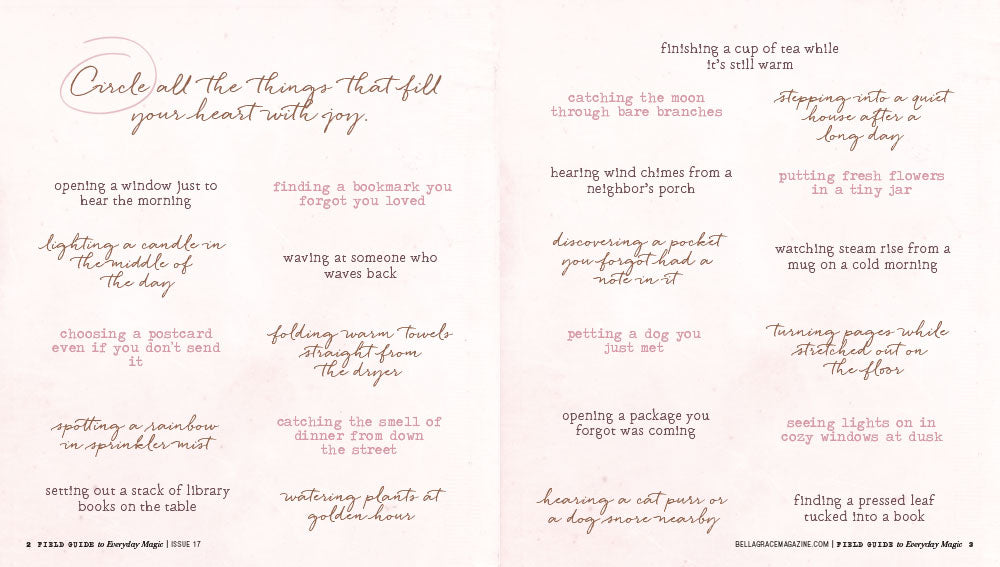 Circle all the things that fill
your heart with joy.
opening a window just to
hear the morning
finding a bookmark you
forgot you loved
lighting a candle in
the middle of
the day
waving at someone who
waves back
choosing a postcard
even if you don't send
it
folding warm towels
straight from
the dryer
spotting a rainbow
in sprinkler mist
catching the smell of
dinner from down
the street
setting out a stack of library
books on the table
watering plants at
golden hour
2 FIELD GUIDE to Everyday Magic | ISSUE 17
finishing a cup of tea while
it's still warm
catching the moon
through bare branches
stepping into a quiet
house after a
long day
hearing wind chimes from a
neighbor's porch
putting fresh flowers
in a tiny jar
discovering a pocket
you forgot had a
note in it
watching steam rise from a
mug on a cold morning
petting a dog you
just met
turning pages while
stretched out on
the floor
opening a package you
forgot was coming
seeing lights on in
cozy windows at dusk
hearing a cat purr or
a dog snore nearby
finding a pressed leaf
tucked into a book
BELLAGRACEMAGAZINE.COM | FIELD GUIDE to Everyday Magic 3